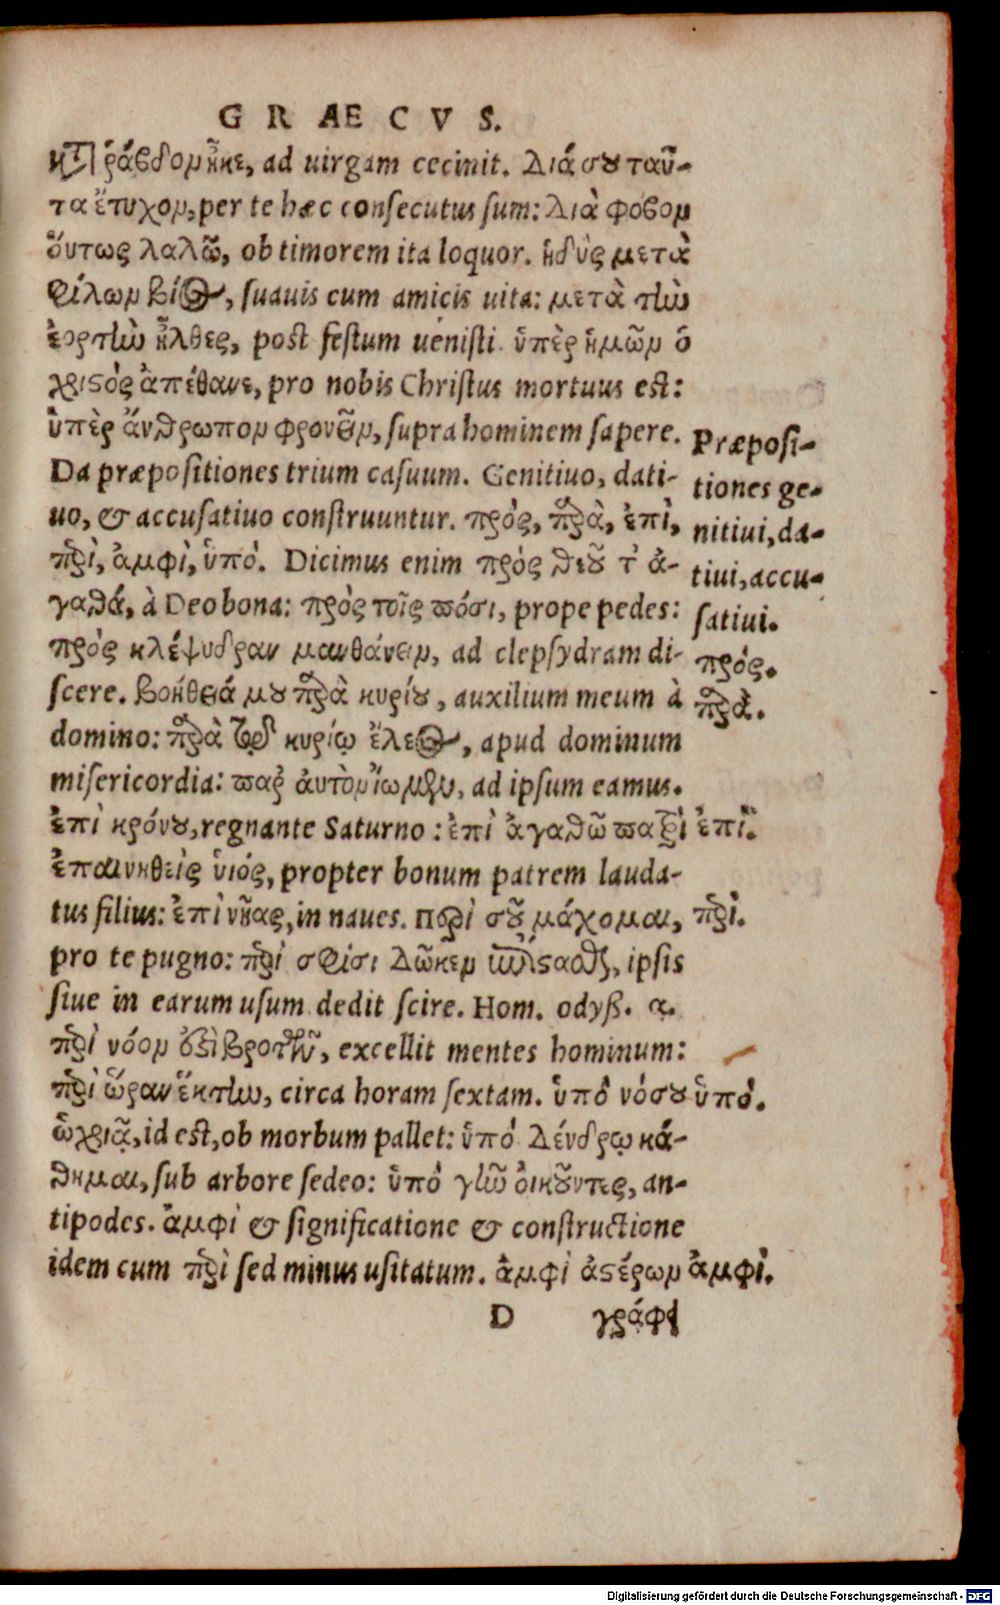 GRAECVS.
ῥάβδομ ἧκε, ad uirgam cecinit. Διά σου ταῦ-
τα ἔτυχον, per te hæc consecutus sum: Διὰ φόβον
ὅυτως λαλῶ, ob timorem ita loquor. ἡδύς μετὰ
φίλων βίος, suauis cum amicis uita: μετὰ τὴν
ἑορτὴν ἦλθες, post festum uenisti. ὑπὲρ ἡμῶν ὁ
χριςὸς ἀπέθανε, pro nobis Christus mortuus est:
ὑπὲρ ἄνθρωπον φρονεῖν, supra hominem sapere.
Da præpositiones trium casuum. Genitiuo, dati-
uo, & accusatiuo construuntur. πρός, παρὰ, ἐπὶ,
περὶ, ἀμφὶ, ὑπό. Dicimus enim πρός θεοῦ τ' ἀ-
γαθά, à Deo bona: πρὸς τοῖς πόσι, prope pedes:
πρὸς κλέψυδραν μανθάνειν, ad clepsydram di-
scere. βοήθειά μου παρὰ κυρίου, auxilium meum à
domino: παρὰ τῷ κυρίῳ ἔλεος, apud dominum
misericordia: παρ' ἀυτὸν ἴωμεν, ad ipsum eamus.
ἐπὶ κρόνου, regnante Saturno: ἐπὶ ἀγαθῶ πατρὶ
ἐπαινηθεὶς ὑιός, propter bonum patrem lauda-
tus filius: ἐπὶ νῆας, in naues. περὶ σοῦ μάχομαι,
pro te pugno: περὶ σφίσι Δῶκεν ἐπίςασθαι, ipsis
siue in earum usum dedit scire. Hom. odyß. α.
περὶ νόον ἐςὶ βροτῶν, excellit mentes hominum:
περὶ ὥραν ἕκτην, circa horam sextam. ὑπὸ νόσου
ὠχριᾷ, id est, ob morbum pallet: ὑπό Δένδρῳ κά-
θημαι, sub arbore sedeo: ὑπό γῆν ὀικοῦντες, an-
tipodes. ἀμφὶ & significatione & constructione
idem cum περὶ sed minus usitatum. ἀμφὶ ἀςέρων
D γράφι
Præposi-
tiones ge-
nitiui, da-
tiui, accu-
satiui.
πρός.
παρὰ.
ἐπὶ.
περὶ.
ὑπό.
ἀμφὶ.
Digitalisierung gefördert durch die Deutsche Forschungsgemeinschaft - DFG